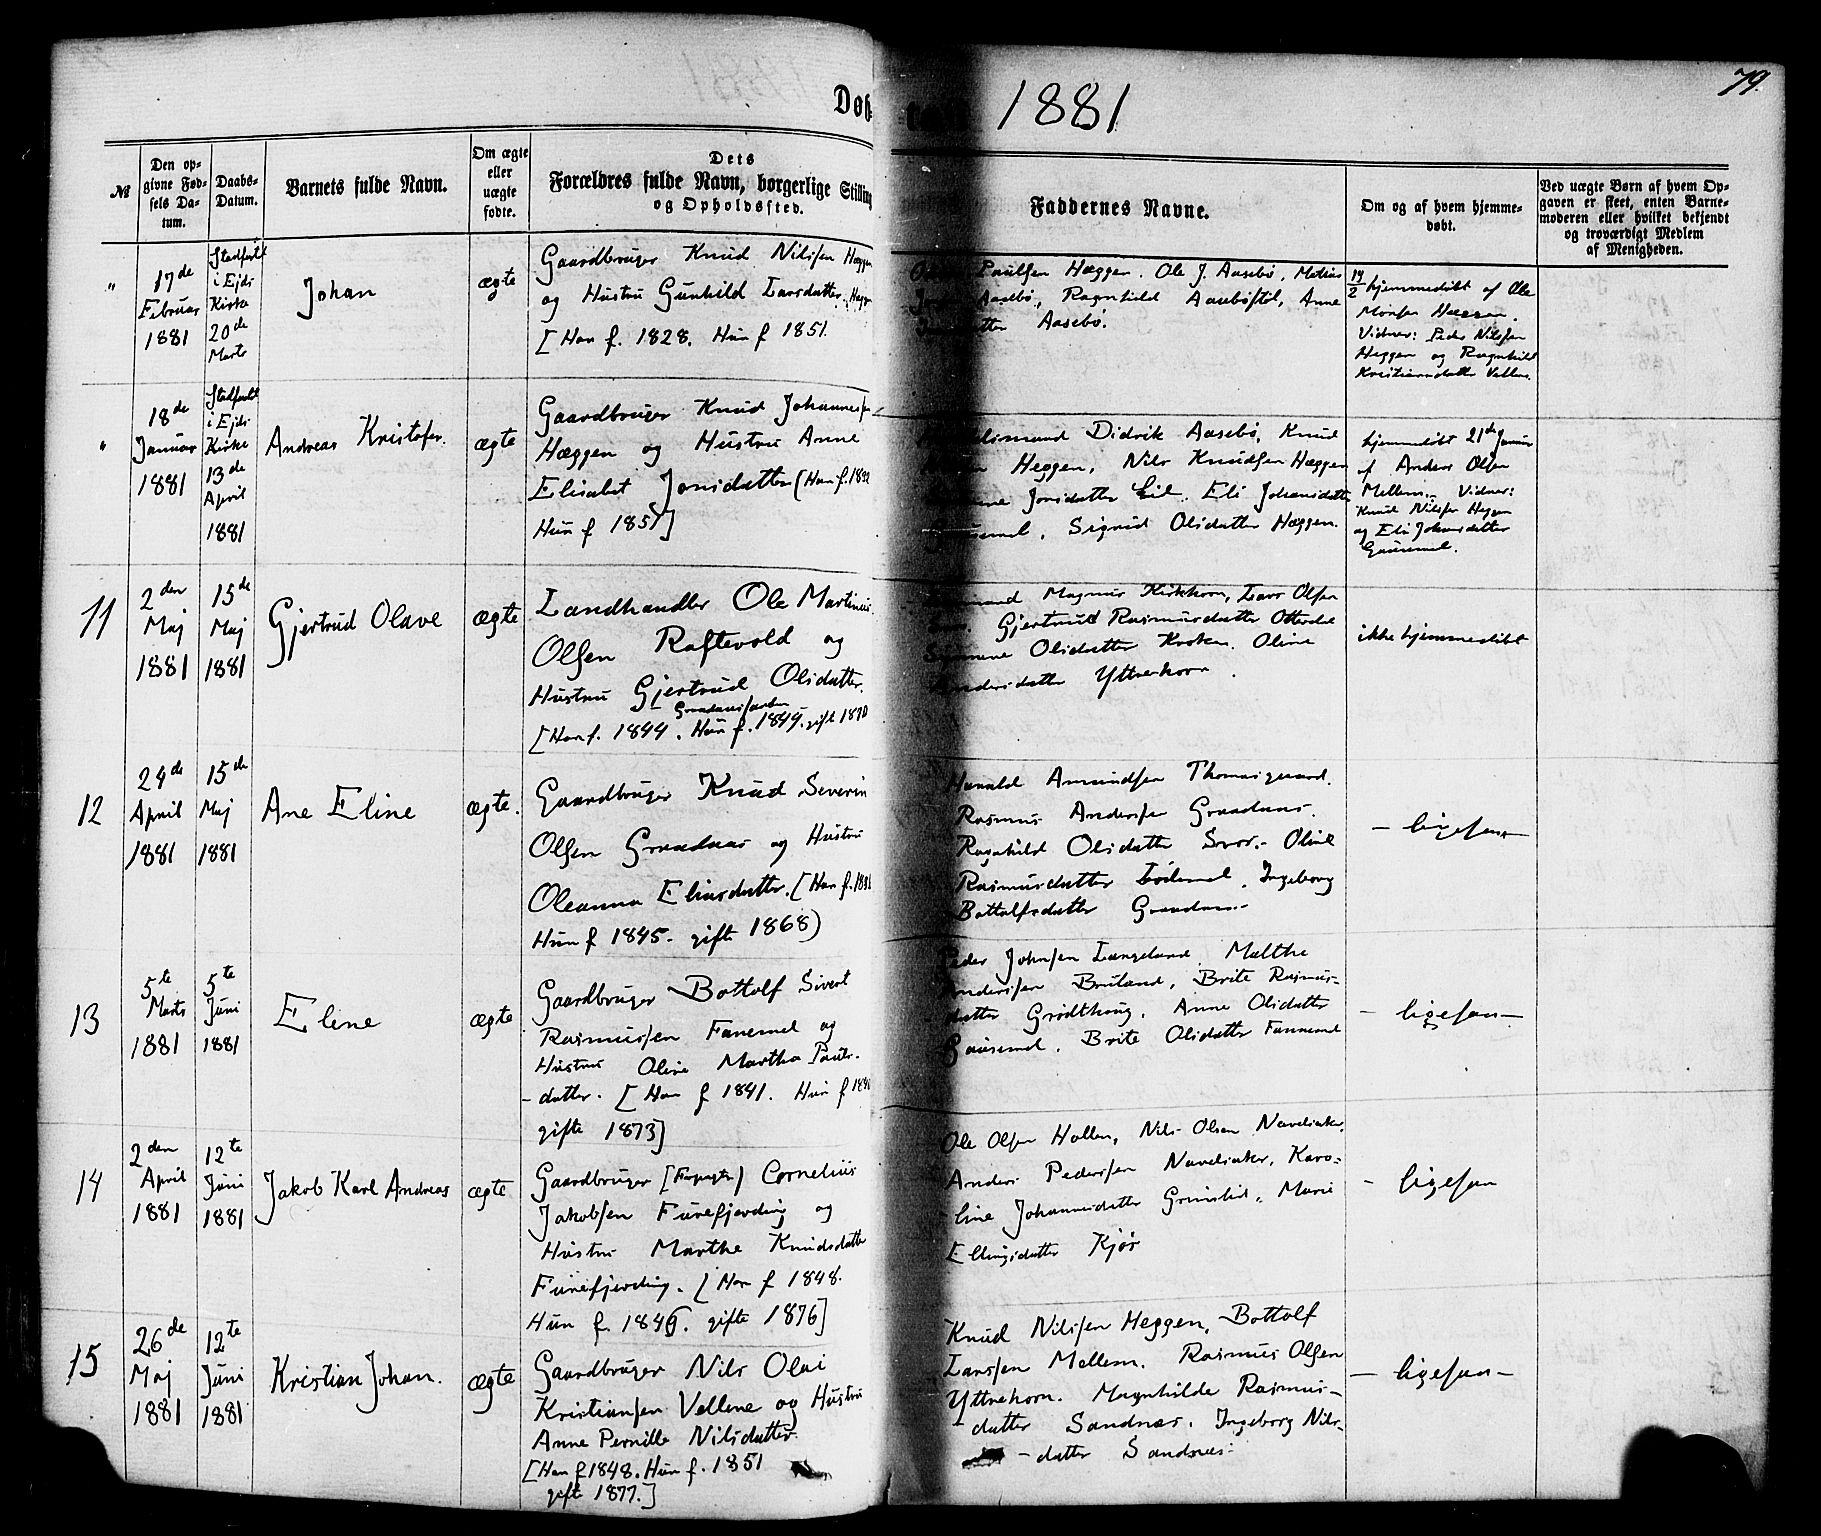 79.
Døb- 1881
№
Den op-
givne Fød-
sels Da-
tum.
Daabs-
Datum.
Barnets fulde Navn.
Om ægte
eller
uægte
fødte.
Dets
Forældres fulde Navn, borgerlige Stilling
og Opholdssted.
Faddernes Navne.
Om og af hvem hjemme-
døbt.
Ved uægte Børn af hvem Op-
gaven er skeet, enten Barne-
moderen eller hvilket bekjendt
og troværdigt Medlem
af Menigheden.
"
17de
Februar
1881
Stadfæstet
i Ejds
Kirke
20de
Marts
Johan
ægte
Gaardbruger Knud Nilssen Hæggen
og Hustru Gunhild Larsdatter.
[Han f. 1828. Hun f 1851.
Paulsen Hæggen. Ole J. Aasebø, Matias
Aasebø, Ragnhild Aasebøstøl, Anne
Aasebø.
19/2 hjemmedøbt af Ole
Monsen Hæggen.
Vidner: Peder Nilssen
Heggen og Ragnhild
Kristiansdatter Vellene.
"
18de
Januar
1881
Stadfæstet
i Ejds
Kirke
13de
April
1881
Andreas Kristofer.
ægte
Gaardbruger Knud Johannessen
Hæggen og Hustru Anne
Elisabet Jonsdatter (Han f.
Hun f 1851]
Didrik Aasebø, Knud
Heggen, Nils Knudsen Hæggen
Jonsdatter Lil. Eli Johansdatter
Sigrid Olsdatter Hæggen.
hjemmedøbt 21de Januar
af Anders Olsen
Mellem. Vidner:
Knud Nilssen Heggen
og Eli Johansdatter
Gausemel.
11
2den
Maj
1881
15de
Maj
1881
Gjertrud Olave
ægte
Landhandler Ole Martinus
Olsen Raftevold og
Hustru Gjertrud Olsdatter.
[Han f. 1844. Hun f. 1849. gift 1870
Magnus Kirkhorn, Lars Olsen
Gjertrud Rasmusdatter Otterdal
Olsdatter Kroken. Oline
Andersdatter Yttrehorn.
ikke hjemmedøbt
12
24de
April
1881
15de
Maj
1881
Ane Eline
ægte.
Gaardbruger Knud Severin
Olsen Graadnæs og Hustru
Oleanna Eliasdatter. [Han f.
Hun f 1845. gifte 1868)
Harald Amundsen Thomasgaard.
Rasmus Andersen Graadnæs.
Ragnhild Olsdatter Svor. Oline
Rasmusdatter Lødemel. Ingeborg
Bottolfsdatter Graadnæs
- ligesaa -
13
5te
Marts
1881
5te
Juni
1881
Eline
ægte
Gaardbruger Bottolf Sivert
Rasmussen Fanemel og
Hustru Oline Martha Pauls-
datter. [Han f 1841. Hun f
gifte 1873]
Peder Johnsen Langeland, Malthe
Anderssen Bruland, Brite Rasmus-
datter Grødthoug, Anne Olsdatter
Gausemel. Brite Olsdatter Fannemel
- ligesaa -
14
2den
April
1881
12te
Juni
1881
Jakob Karl Andreas
ægte
Gaardbruger [Forpagter] Cornelius
Jakobsen Furefjerding og
Hustru Marthe Knudsdatter
Furefjerding. [Han f 1848.
Hun f. 1846. gifte 1876]
Ole Olsen Hollen, Nils Olsen Navelsaker,
Anders Pederssen Navelsaker, Karo-
line Johannesdatter Grimstad. Marie
Ellingsdatter Kjøs
- ligesaa
15
26de
Maj
1881
12te
Juni
1881
Kristian Johan.
ægte
Gaardbruger Nils Olai
Kristiansen Vellene og Hustru
Anne Pernille Nilsdatter.
[Han f 1848. Hun f. 1851
gifte 1877.]
Knud Nilssen Heggen, Bottolf
Larssen Mellem. Rasmus Olsen
Yttrehorn. Magnhilde Rasmus-
datter Sandnæs. Ingeborg Nils-
- datter Sandnæs.
- ligesaa -